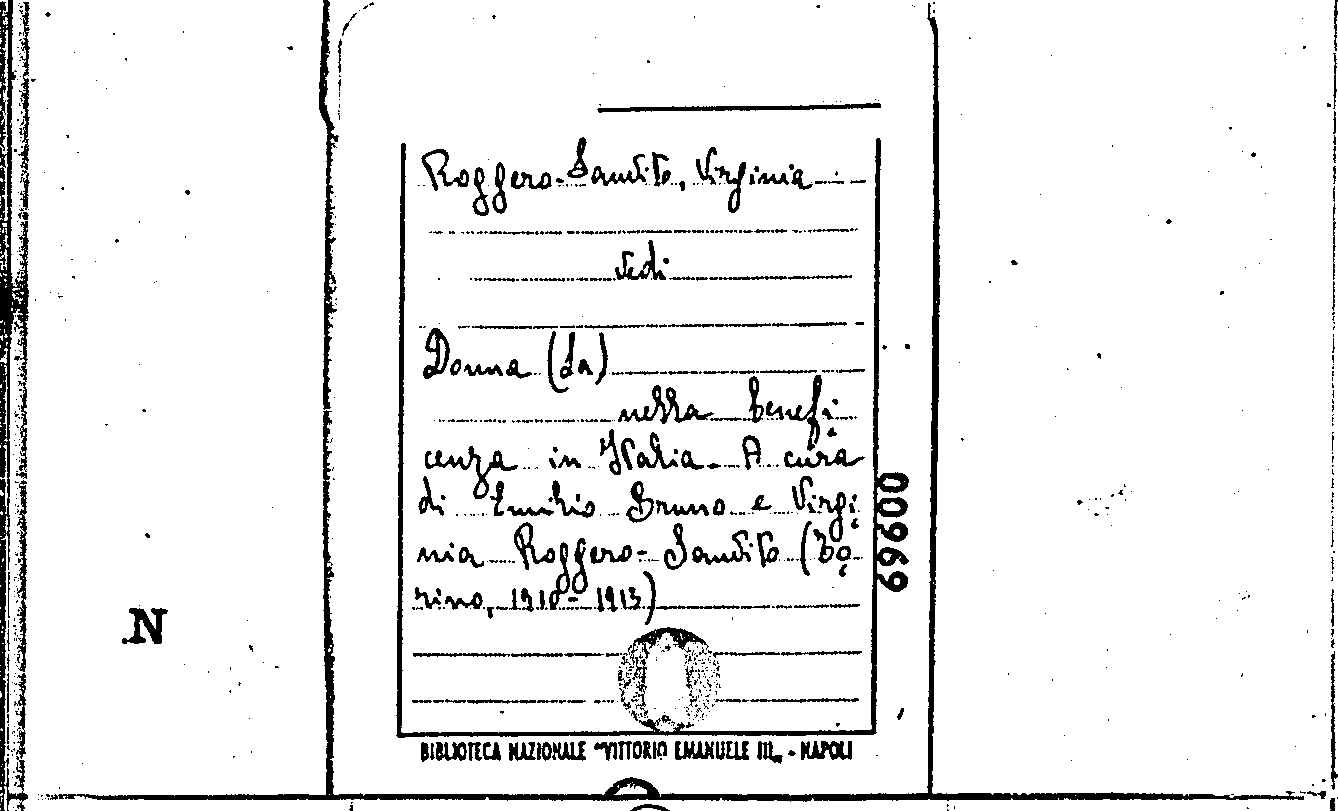 Roggero-Sandito, Virginia
vedi
Donna (La)
nella benefi
cenza in Italia. A cura
di Emilio Bruno e Virgi
nia Roggero-Sandito (To
rino, 1910-1913)
00969
N
BIBLIOTECA NAZIONALE "VITTORIO EMANUELE III„ - NAPOLI